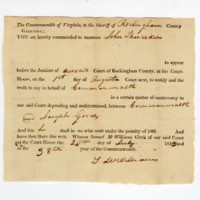 The Commonwealth of Virginia, to the Sheriff of Rockingham County
Greeting:
YOU are hereby commanded to summon John
to appear
before the Justices of our said Court of Rockingham County, at the Court
House, on the 1st day of August Court next, to testify and the
truth to say in behalf of Commonwealth
in a certain matter of controversy in
our said Court depending and undetermined, between Commonwealth
and Joseph
And this he shall in no wise omit under the penalty of £
have then there this writ. Witness Samuel McWilliams Clerk of our said Court
at the Court House the day of July 181
in the 38th year of the Commonwealth.
S McWilliams